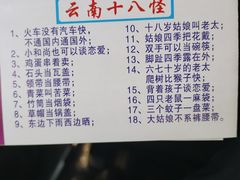 云南十八怪
1、火车没有汽车快，
不通国内通国外；
2、小和尚也可以谈恋爱；
3、鸡蛋串着卖；
4、石头当瓦盖；
5、领带当腰带；
6、青菜叫苦菜；
7、竹筒当烟袋；
8、草帽当锅盖；
9、东边下雨西边晒；
10、十八岁姑娘叫老太；
11、姑娘四季把花戴；
12、双手可以当碗筷；
13、脚趾四季露在外；
14、六七十岁的老太
爬树比猴子快；
15、背着孩子谈恋爱；
16、四只老鼠一麻袋；
17、三个蚊子一盘菜；
18、大姑娘不系裤腰带。